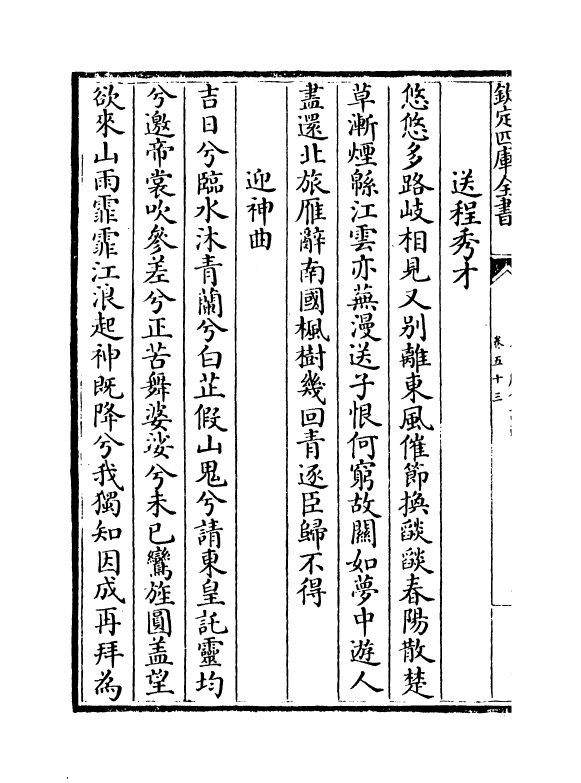 欽定四庫全書
卷五十三
送程秀才
悠悠多路岐相見又别離東風催節換燄燄春陽散楚
草漸煙緜江雲亦蕪漫送子恨何窮故關如夢中遊人
盡還北旅雁辭南國楓樹幾回青逐臣歸不得
迎神曲
吉日兮臨水沐青蘭兮白芷假山鬼兮請東皇託靈均
兮邀帝裳吹參差兮正苦舞婆娑兮未已鸞旌圓盖望
欲來山雨霏霏江浪起神既降兮我獨知因成再拜為